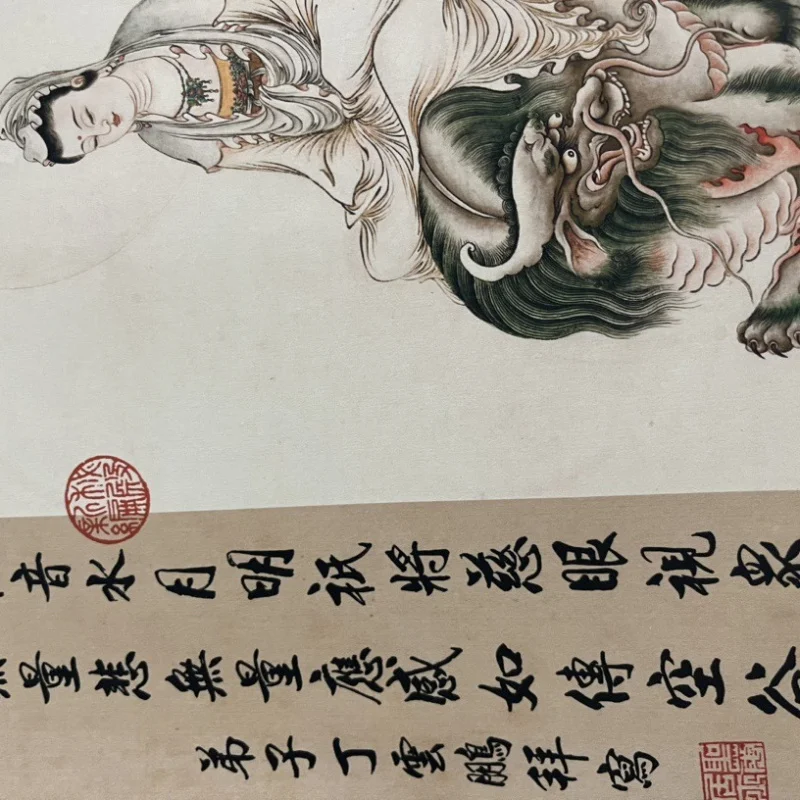 音水月明祇將慈眼視眾
量悲無量應感如傳空谷
弟子丁雲鵬拜寫